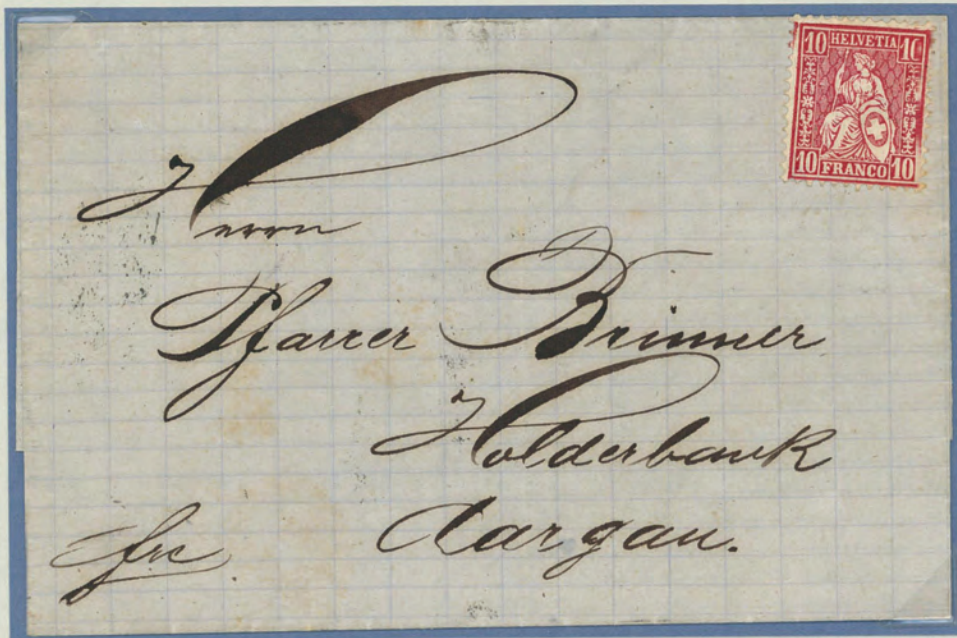 10 HELVETIA 10
10 FRANCO 10
Herrn
Pfarrer Brunner
Holderbank
Aargau.
frc